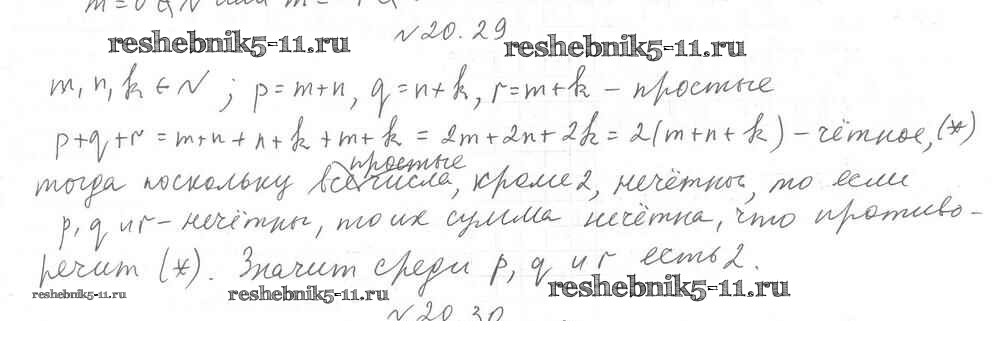 №20.29
reshebnik5-11.ru reshebnik5-11.ru
m, n, k ∈ N ; p=m+n, q=n+k, r=m+k – простые
p+q+r = m+n+n+k+m+k = 2m+2n+2k = 2(m+n+k) – чётное, (*)
простые
тогда поскольку все числа, кроме 2, нечётны, то если
p, q и r – нечётны, то их сумма нечётна, что противо-
речит (*). Значит среди p, q и r есть 2.
reshebnik5-11.ru reshebnik5-11.ru reshebnik5-11.ru
№20.30